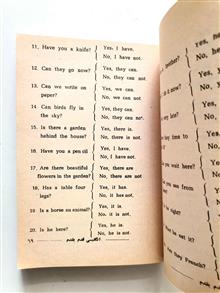 11. Have you a knife? Yes, I have.
No, I have not.
12. Can they go now? Yes, they can.
No, they can not
13. Can we write on Yes, we can.
paper? No, we can not.
14. Can birds fly in Yes, they can.
the sky? No, they can no'.
15. Is there a garden Yes, there is.
behind the house? No, there is not.
16. Have you a pen oil Yes, I have.
No, I have not.
17. Are there beautiful Yes, there are
flowers in the garden? No, there are not
18. Has a table four Yes, it has.
legs? No, it has not.
19. Is a horse an animal? Yes, it is.
No, it is not.
20. Is he here? Yes, he is.
No, he is not.
Yes,
No,
brother?
do it now?
key time to
wait here?
see from
night?
set in
they French?